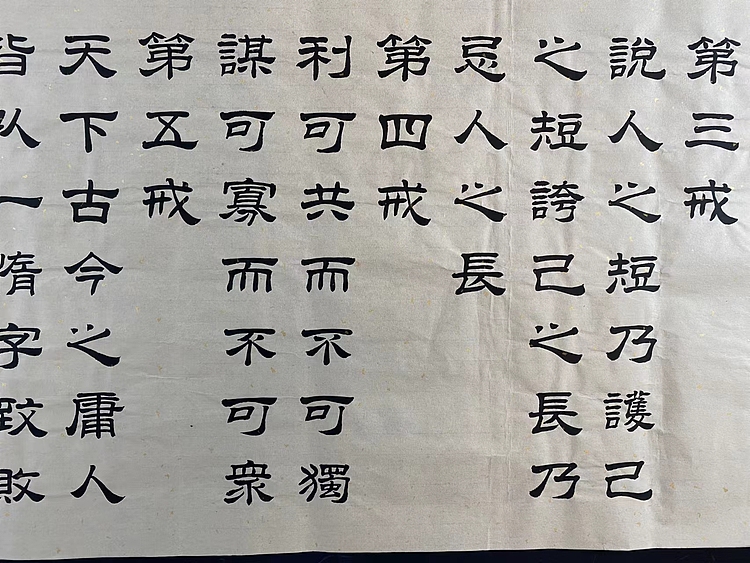 第三戒
說人之短乃護己
之短誇己之長乃
忌人之長
第四戒
利可共而不可獨
謀可寡而不可衆
第五戒
天下古今之庸人
皆以一惰字致敗